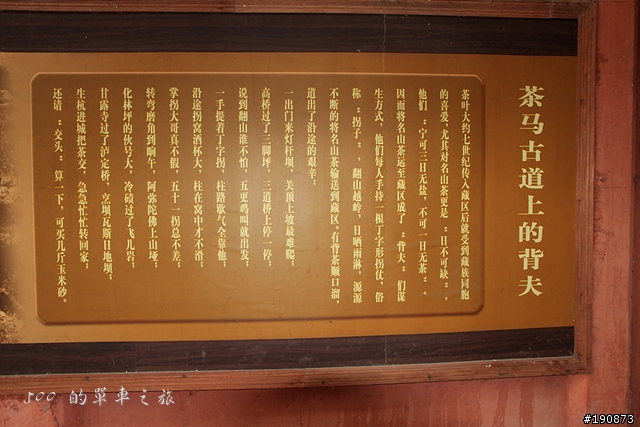 茶马古道上的背夫
茶叶大约七世纪传入藏区后就受到藏族同胞
的喜爱，尤其对名山茶更是“日不可缺”，
他们“宁可三日无盐，不可一日无茶”。
因而将名山茶运至藏区成了“背夫”们谋
生方式，他们每人手持一根丁字形拐仗，俗
称“拐子”，翻山越岭，日晒雨淋，源源
不断的将名山茶输送到藏区。有背茶顺口溜，
道出了沿途的艰辛：
一出门来灯杆坝，关顶上坡最难爬；
高桥过了三脚坪，三道桥上停一停；
说到翻山谁不怕，五更鸡叫就出发；
一手提着丁字拐，柱路歇气全靠他；
沿途拐窝酒杯大，柱在窝中才不滑；
掌拐大哥真不假，五十一拐总不差；
转弯磨角到晌午，阿弥陀佛上山垭；
化林坪的伙号大，冷碛过了飞儿岩；
甘露寺过了泸定桥，烹坝瓦斯日地坝；
生杭进城把茶交，急急忙忙转回家；
还请“交头”算一下，可买几斤玉米砂。
500 的單車之旅
#190873